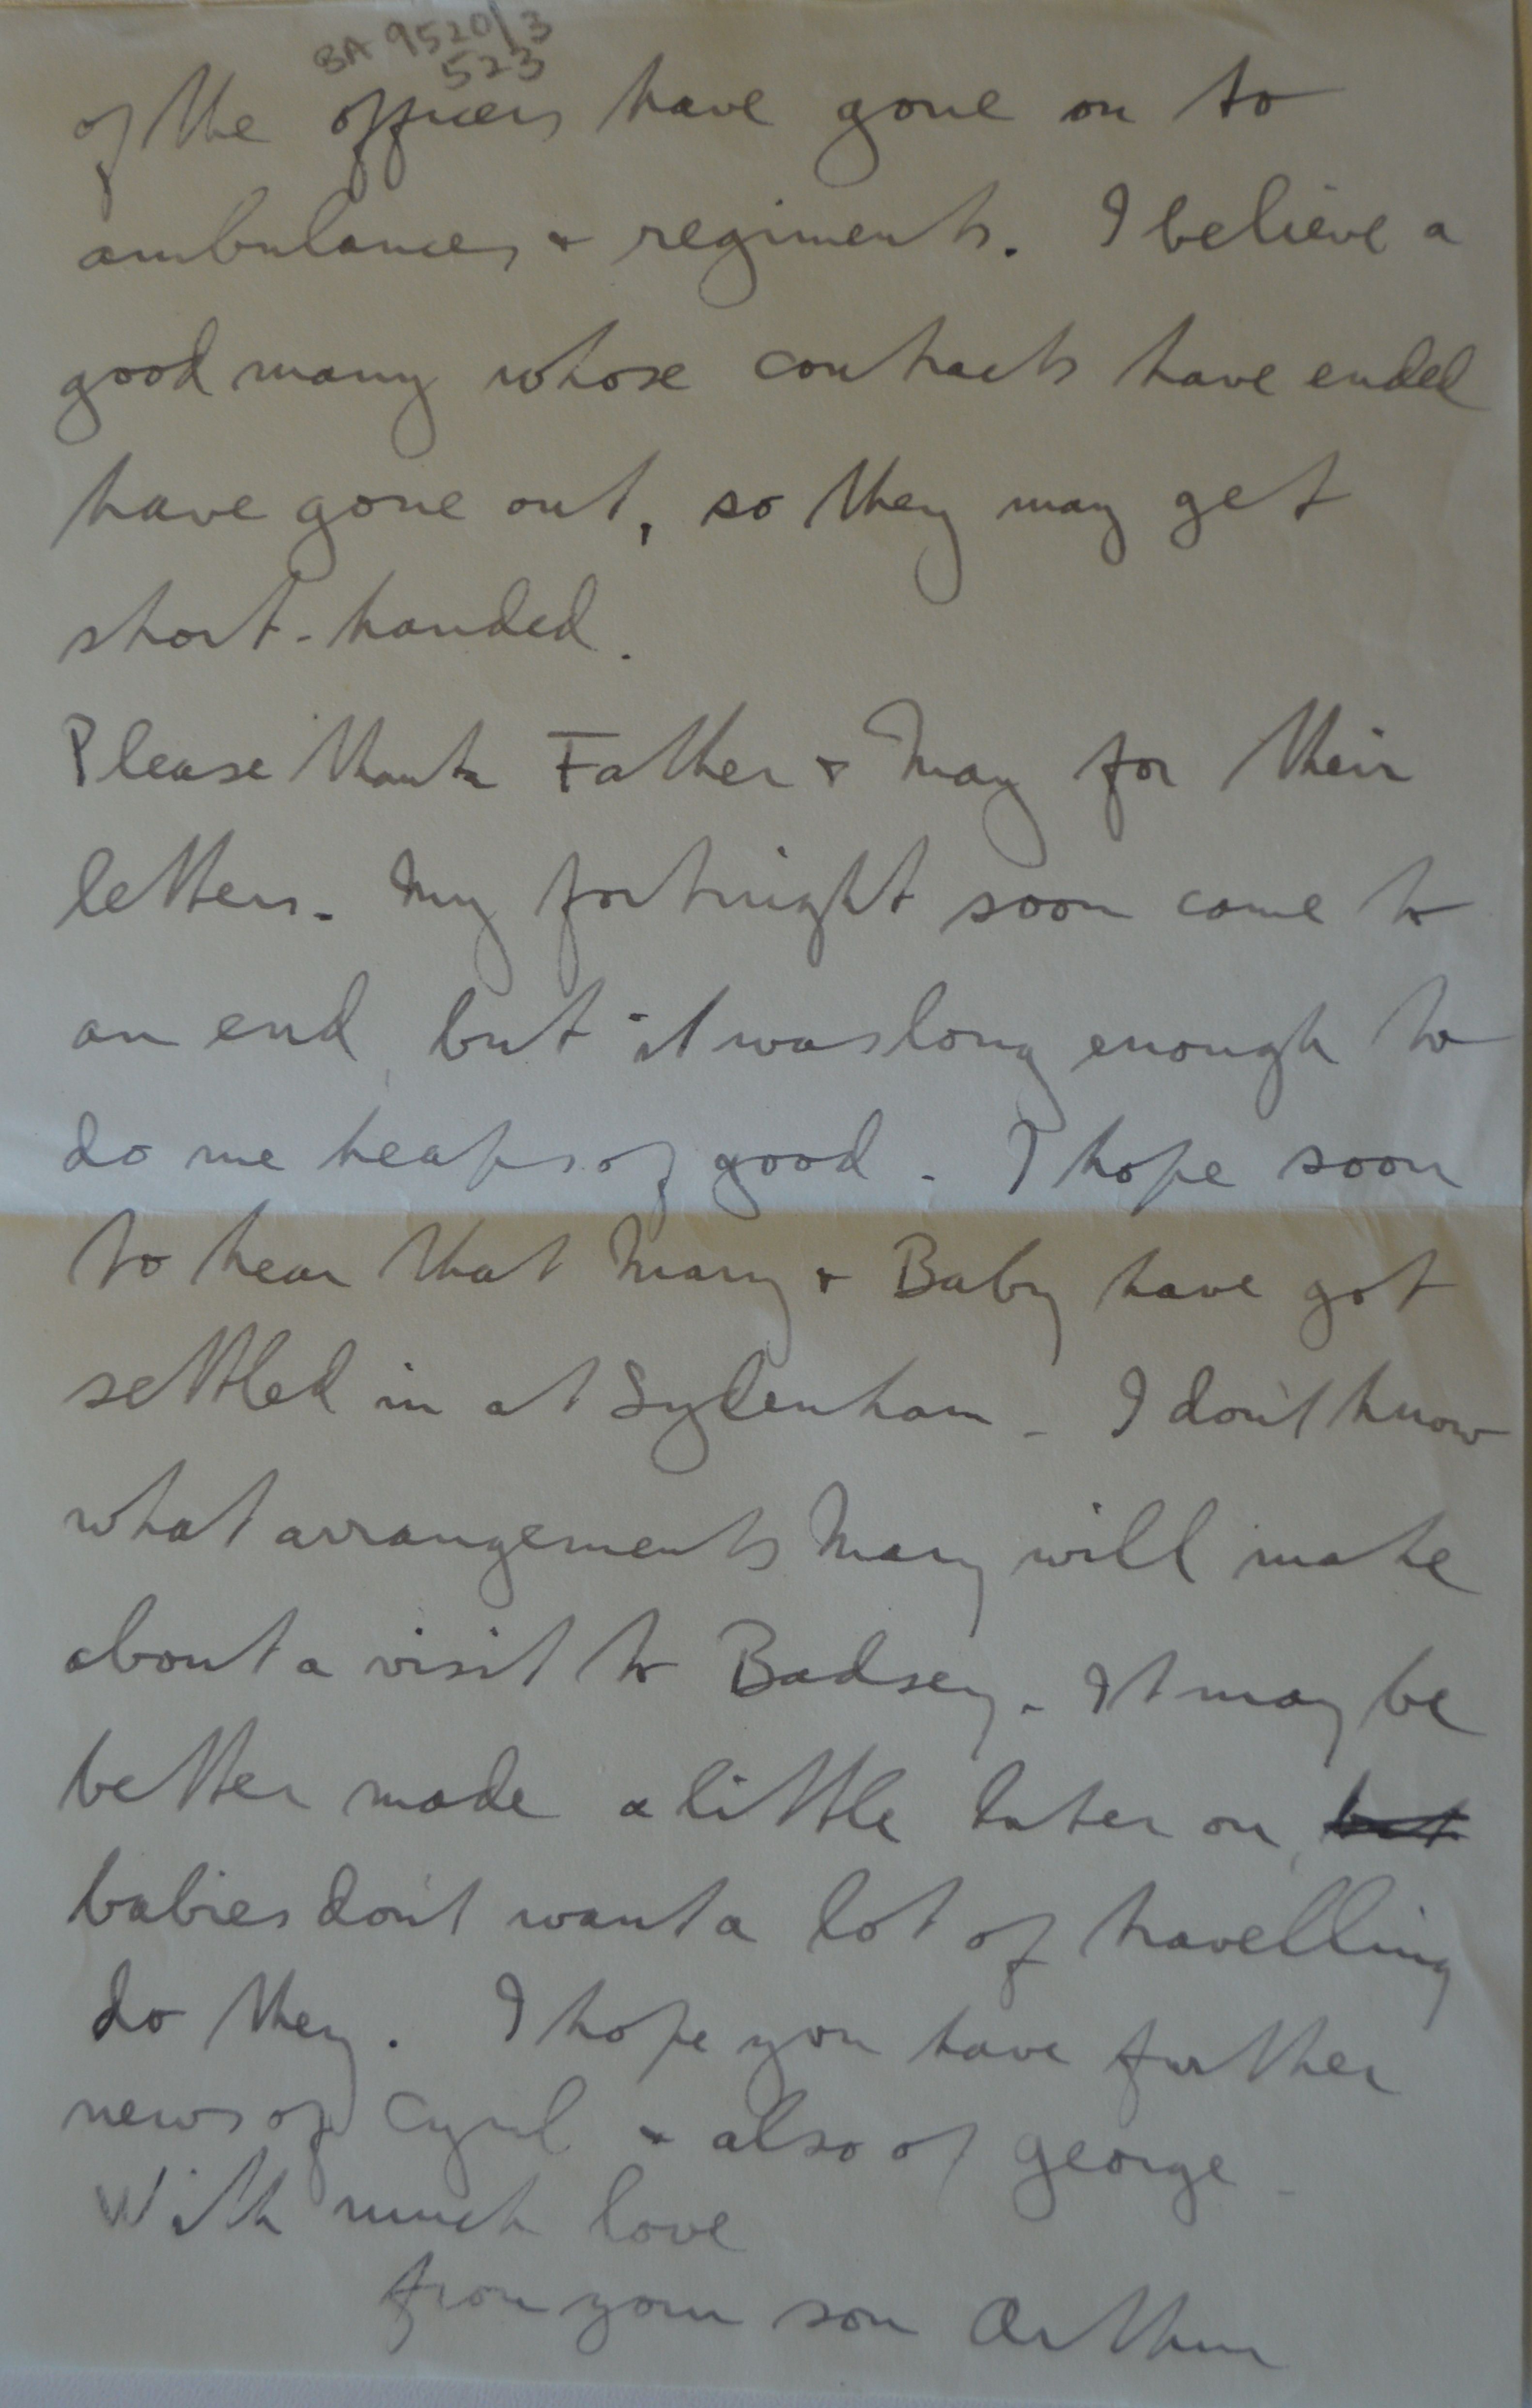 BA 9520/3
523
of the officers have gone on to
ambulances & regiments. I believe a
good many whose contracts have ended
have gone out, so they may get
short-handed.
Please thank Father & May for their
letters. My fortnight soon came to
an end, but it was long enough to
do me heaps of good. I hope soon
to hear that Mary & Baby have got
settled in at Sydenham. I don't know
what arrangements Mary will make
about a visit to Badsey. It may be
better made a little later on, but
babies don't want a lot of travelling
do they. I hope you have further
news of Cyril & also of George.
With much love
from your son Arthur